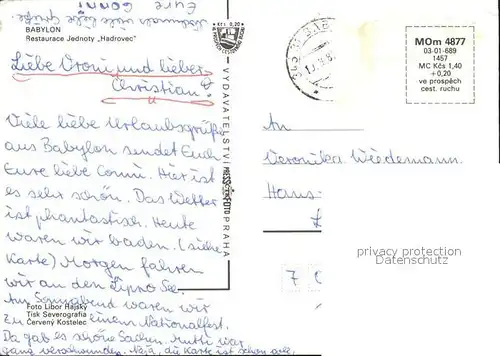 Eure Conni
Nochmal viele liebe Grüße
BABYLON
Restaurace Jednoty „Hadrovec"
Kčs 0,20
Liebe Vroni und lieber
Christian!
Viele liebe Urlaubsgrüße
aus Babylon sendet Euch
Eure liebe Conni. Hier ist
es sehr schön. Das Wetter
ist phantastisch. Heute
waren wir baden. (siehe
Karte) Morgen fahren
wir an den Lipno See.
Am Sonnabend waren wir
zu einem Nationalfest.
Da gab es schöne Sachen. Mutti war
ganz verschwunden. Naja, die Karte ist schon alle.
Foto Libor Hajský
Tisk Severografia
Červený Kostelec
VYDAVATELSTVÍ
PRAHA
MOm 4877
03-01-689
1457
MC Kčs 1,40
+0,20
ve prospěch
cest. ruchu
An
Veronika Wiedemann.
Hans-
privacy protection
Datenschutz
7